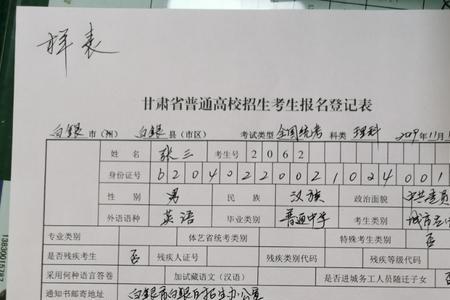 样表
甘肃省普通高校招生考生报名登记表
白银 市(州) 白银 县(市区) 考试类型 全国统考 科类 理科
姓名 张三 考生号 2 0 6 2
身份证号 6 2 0 4 0 2 2 0 0 2 1 0 2 4 0 0 1
性别 男 民族 汉族 政治面貌
外语语种 英语 毕业类别 普通中学 考生类别
专业类别 体艺省统考类别 特殊考生类别 否
是否残疾考生 否 残疾人证号 残疾类别代码 残疾等级代码
采用何种语言答卷 加试藏语文(汉语) 是否进城务工人员随迁子女
通知书邮寄地址 白银市白银区招生办公室